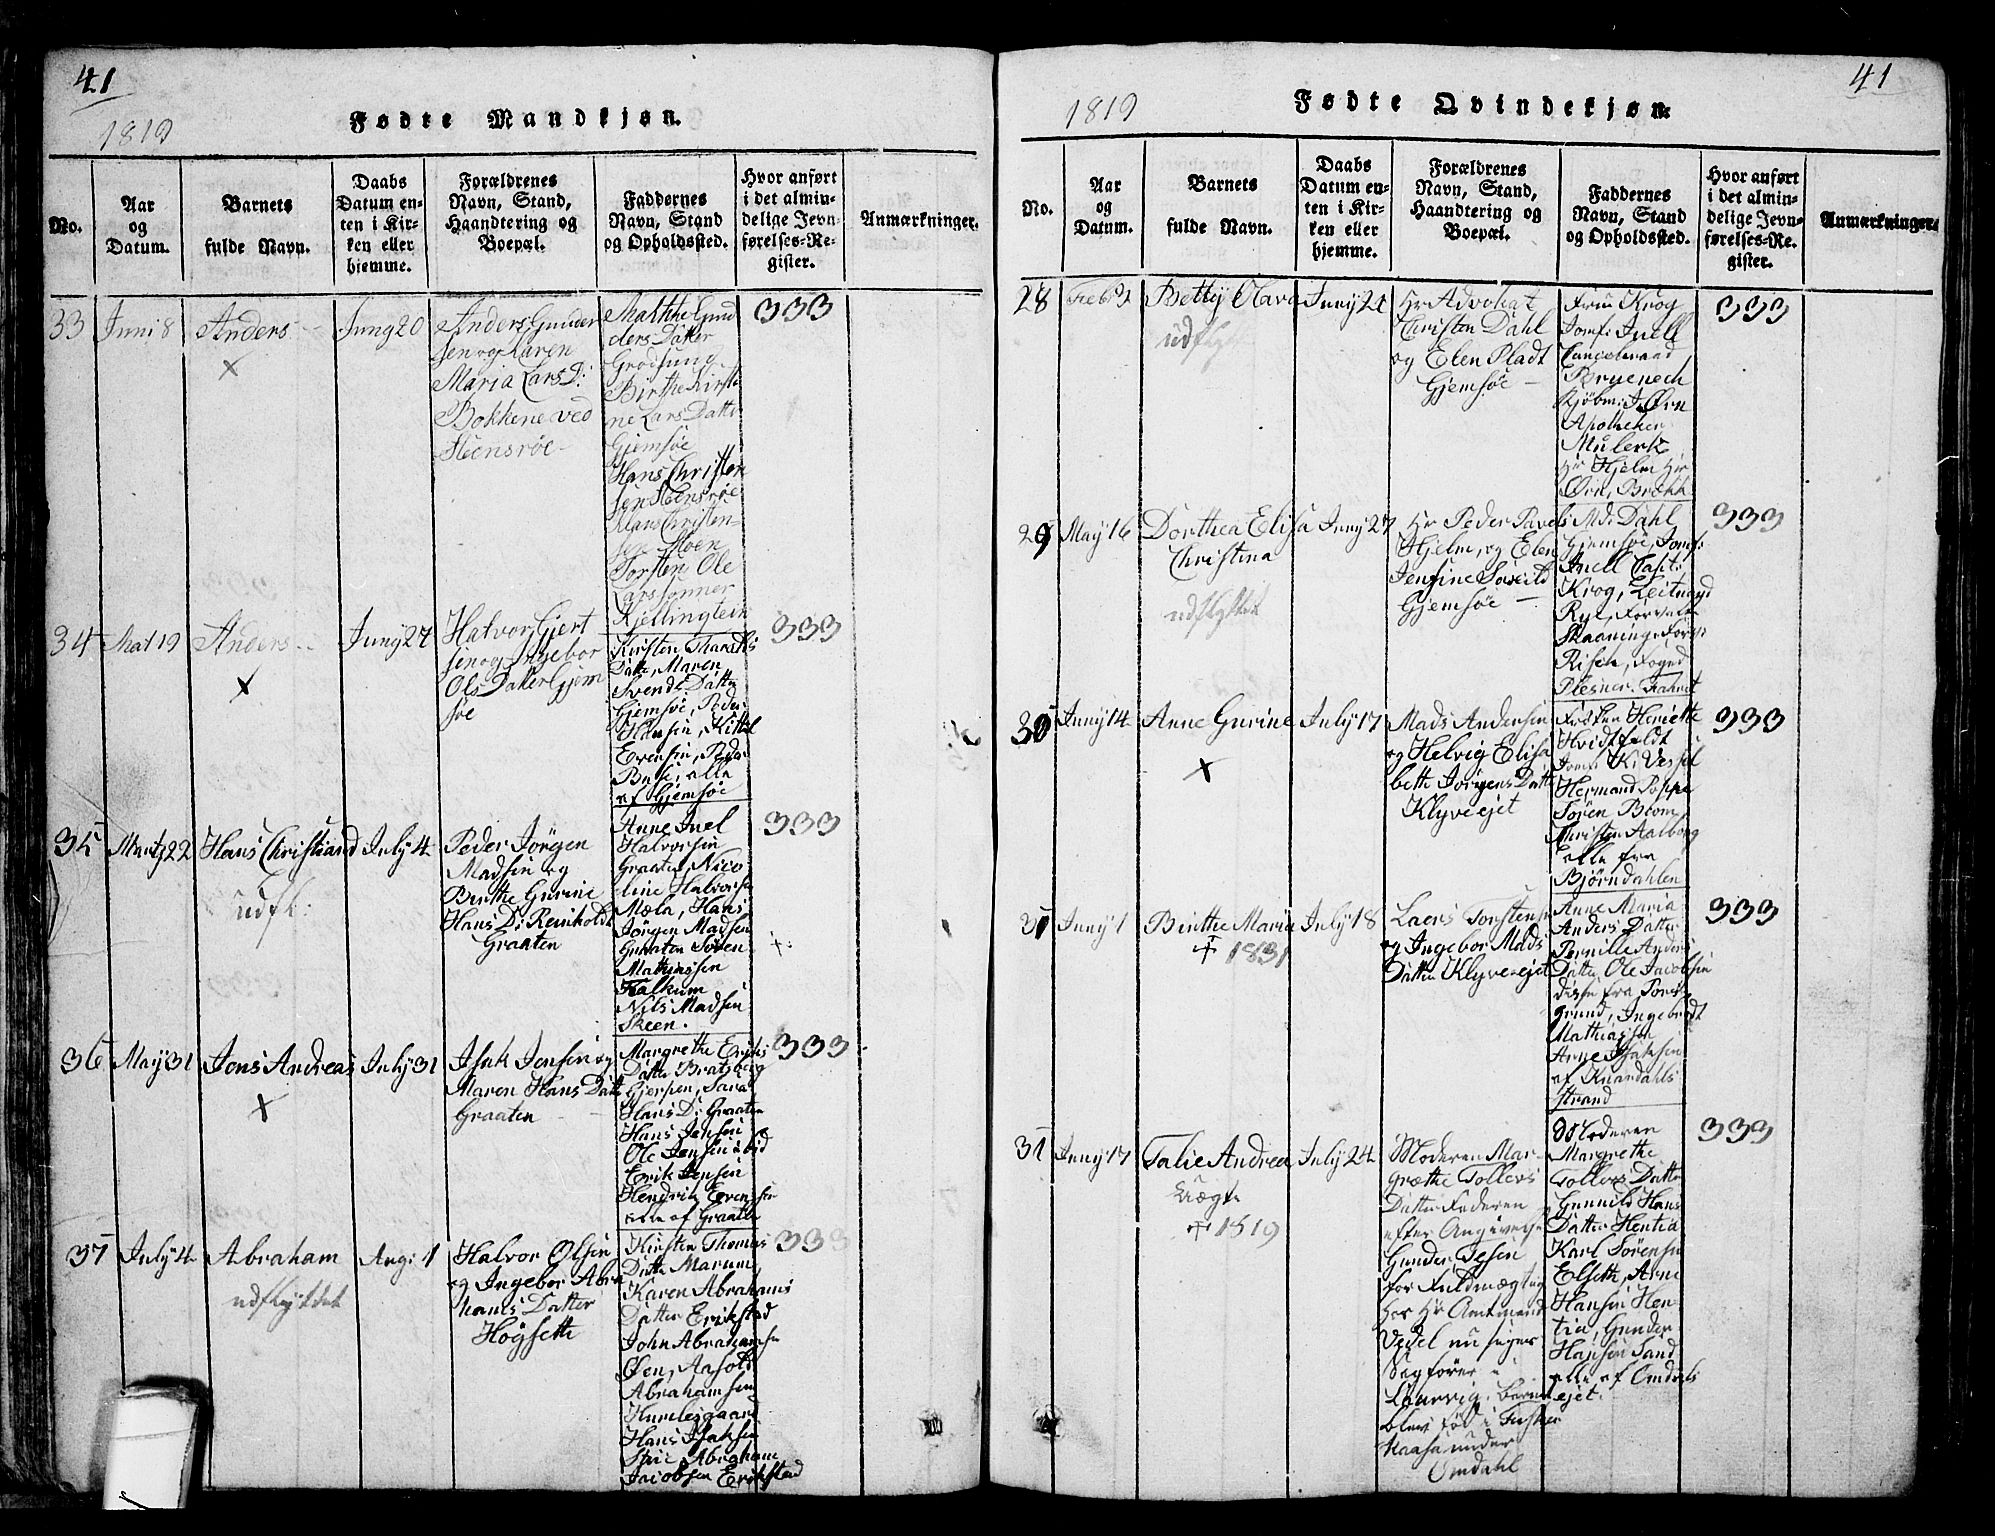 41
1819
Fødte Mandkjøn.
No.
Aar
og
Datum.
Barnets
fulde Navn.
Daabs
Datum en-
ten i Kir-
ken eller
hjemme.
Forældrenes
Navn, Stand,
Haandtering og
Boepæl.
Faddernes
Navn, Stand
og Opholdssted.
Hvor anført
i det almin-
delige Jevn-
førelses-Re-
gister.
Anmærkninger.
33
Juni 8
Anders
Juny 20
Anders Gunder
sen og Karen
Maria Lars D:
Bokkene ved
Steensrøe
Malthe Gun
ders Datter
Birthe Kirsti
ne Lars Datter
Gjemsøe
Hans Christen
sen Steensrøe
Hans Christen-
sen Moen
Torsten Ole
Larssønner
Kjellingtein
333
34
Mai 19
Anders
Juny 27
Halvor Gjert
sen og Ingebor
Ols Datter Gjem
søe
Kirsten
Datter, Maren
Svends Datter
Gjemsøe, Peder
Hansen, Kittil
Evensen, Peder
alle
af Gjemsøe
333
35
Martz 22
Hans Christiand
udfl:
July 4
Peder Jörgen
Madsen og
Birthe Gurine
Hans D: Reinholdt
Graaten
Anne Juel
Halvorsen
Graaten, Nico
line Halvorsen
Mæla, Hans
Jörgen Madsen
Graaten Sören
Mathiassen
Falkum
Nils Madsen
Skeen.
333
36
May 31
Jens Andreas
July 31
Isak Jensen og
Maren Hans Datter
Graaten
Margrethe Eriks
Datter Bratsberg
Gjerpen, Sara
Hans D: Graaten
Hans Jensen
Ole Jensen ibid
Erik Jensen
Hendrik Evensen
alle af Graaten
333
37
July 4
Abraham
udflyttet
Aug: 1
Halvor Olsen
og Ingebor Abra
hams Datter
Höysett
Kirsten Thomas
Datter Marum,
Karen Abrahams
Datter Erikstad
John Abrahamsen
Øen, Aasold
Abrahamsen
Humlesgaard
Hans Isaksen
Abraham
Jacobsen Erikstad
333
41
1819
Fødte Qvindekjøn.
No.
Aar
og
Datum.
Barnets
fulde Navn.
Daabs
Datum en-
ten i Kir-
ken eller
hjemme.
Forældrenes
Navn, Stand,
Haandtering og
Boepæl.
Faddernes
Navn, Stand
og Opholdssted.
Hvor anført
i det almin-
delige Jevn-
førelses-Re-
gister.
Anmærkninger.
28
Febr 2
Betty Olava
udflyt
Juny 21
Hr Advokat
Christen Dahl
og Elen Pladt
Gjemsøe
Frue Krog
Jomf: Juell
Cancelieraad
Kjöbm: J. Ørn
Apotheker
Hr Hjelm Hr
Ørn, Brækk
333
29
May 16
Dorthea Elisa
Christina
udflyttet
Juny 27
Hr Peder Pavels
Hjelm, og Elen
Jensine
Gjemsøe
Md: Dahl
Gjemsøe, Jomf:
Juell Capt:
Krog, Leitnand
Rye, Forvalt
Skaaning, Forv:
Risen, Foged
Plesner
333
30
Juny 14
Anne Gurine
July 17
Mads Andersen
og Helvig Elisa
beth Jörgens Datter
Klyveejet
Fröken Heriette
Hvidtfeldt
Jomf: K: Vessel
Hermand Poppe
Sören Blom
Christen Aalborg
alle fra
Björndahlen
333
31
Juny 1
Birthe Maria
✝ 1831
July 18
Laers Torstensen
og Ingebor Mads
Datter Klyveejet
Anne Maria
Anders Datter
Pernille Anders
Datter, Ole Jacobsen
disse fra Pors
grund, Ingebrecht
Mathiassen
Arne Isaksen
af Knardahls
strand
333
31
Juny 17
Talie Andrea
Uægte
✝ 1819
July 24
Moderen Mar-
grethe Tollevs
Datter Faderen
efter Angivelse
Gunder Jesen
for Fuldmægtig
hos Hr Amtmand
Vedel nu
Sagförer i
Laurvig, barnet
blev fød i Fisker
Kaasa under
Omdahl
Moderen
Margrethe
Tollevs Datter
Gunnild Hans
Datter Hentia
Karl Sörensen
Elseth, Arne
Hansen Hen
tia, Gunder
Hansen Sand
alle af Omdals
ejet.
333